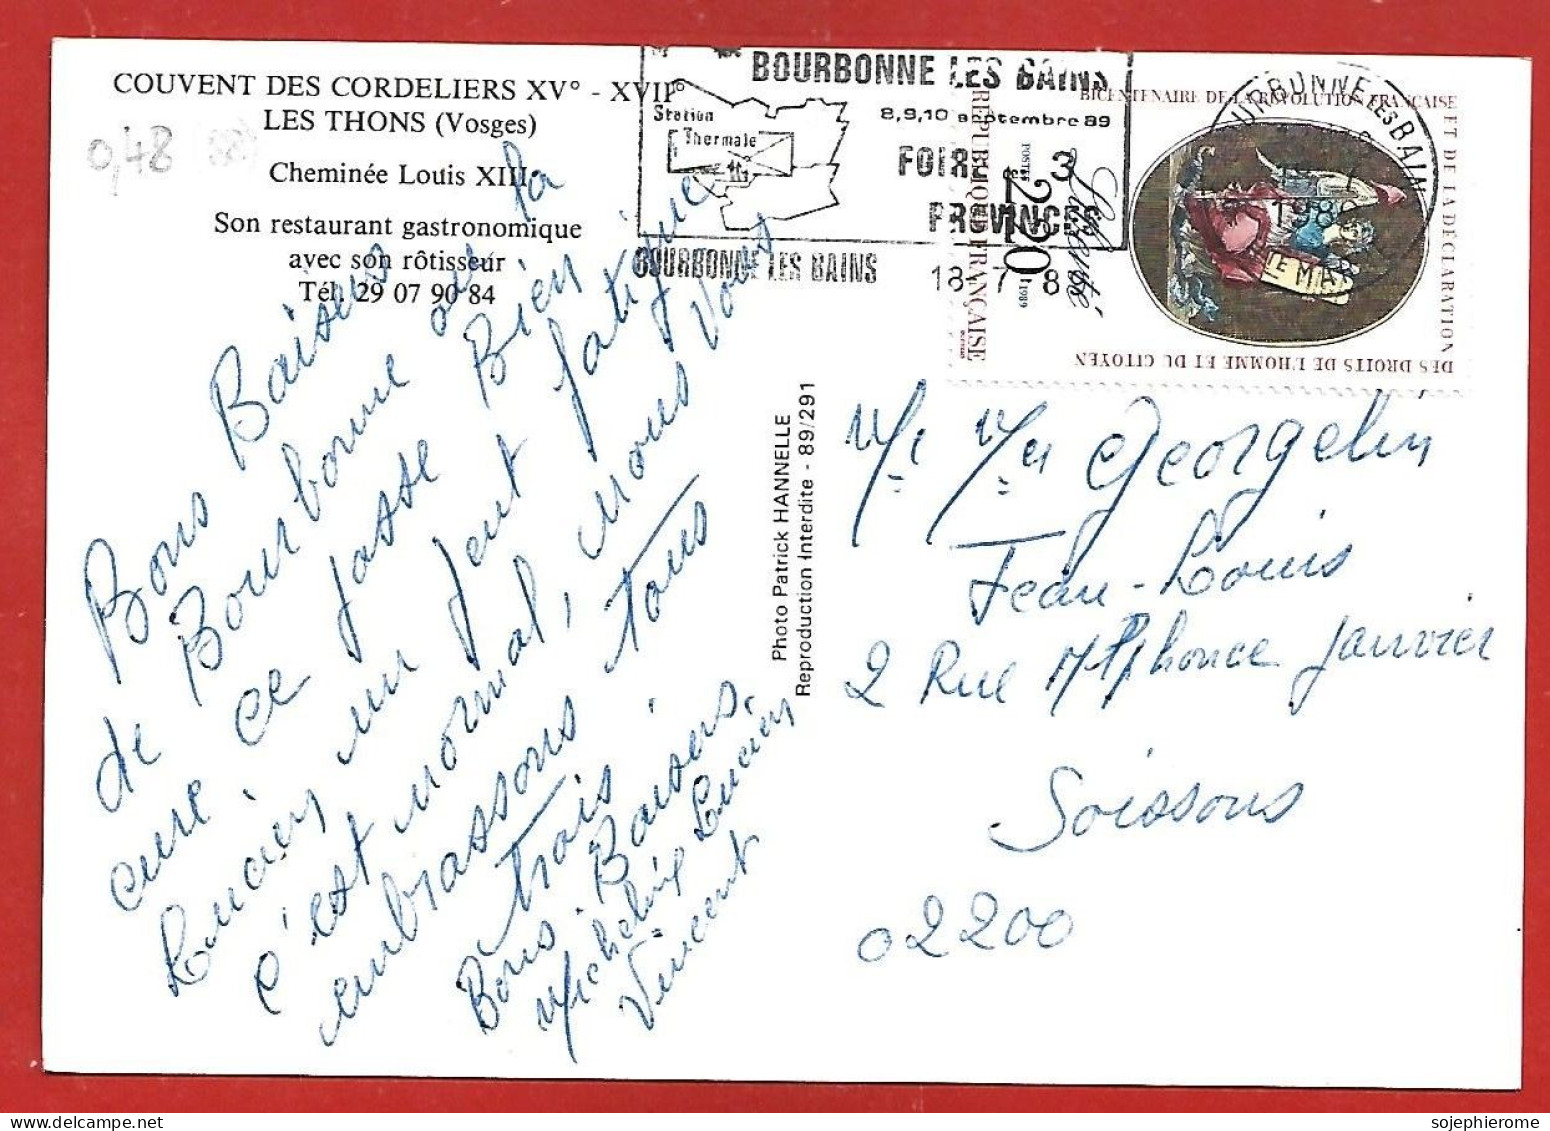 COUVENT DES CORDELIERS XV° - XVII°
LES THONS (Vosges)
0,48
Cheminée Louis XIII
Son restaurant gastronomique
avec son rôtisseur
Tél. 29 07 90 84
BOURBONNE LES BAINS
Station
Thermale
8,9,10 septembre 89
FOIRE 3
PROVINCES
BOURBONNE LES BAINS
18 7 8
BOURBONNE LES BAINS
1989
HTE MARNE
BICENTENAIRE DE LA RÉVOLUTION FRANÇAISE
ET DE LA DÉCLARATION
DES DROITS DE L'HOMME ET DU CITOYEN
REPUBLIQUE FRANÇAISE
POSTES
2,20
1989
Liberté
Photo Patrick HANNELLE
Reproduction Interdite - 89/291
Bons Baisers
de Bourbonne où la
cure ce passe Bien
Lucien un peut fatigué
c'est normal, nous vous
embrassons tous
trois.
Bons Baisers.
Micheline Lucien
Vincent
Mr Mme Georgelin
Jean-Louis
2 Rue Alphonce Janvier
Soissons
02200
sojephierome